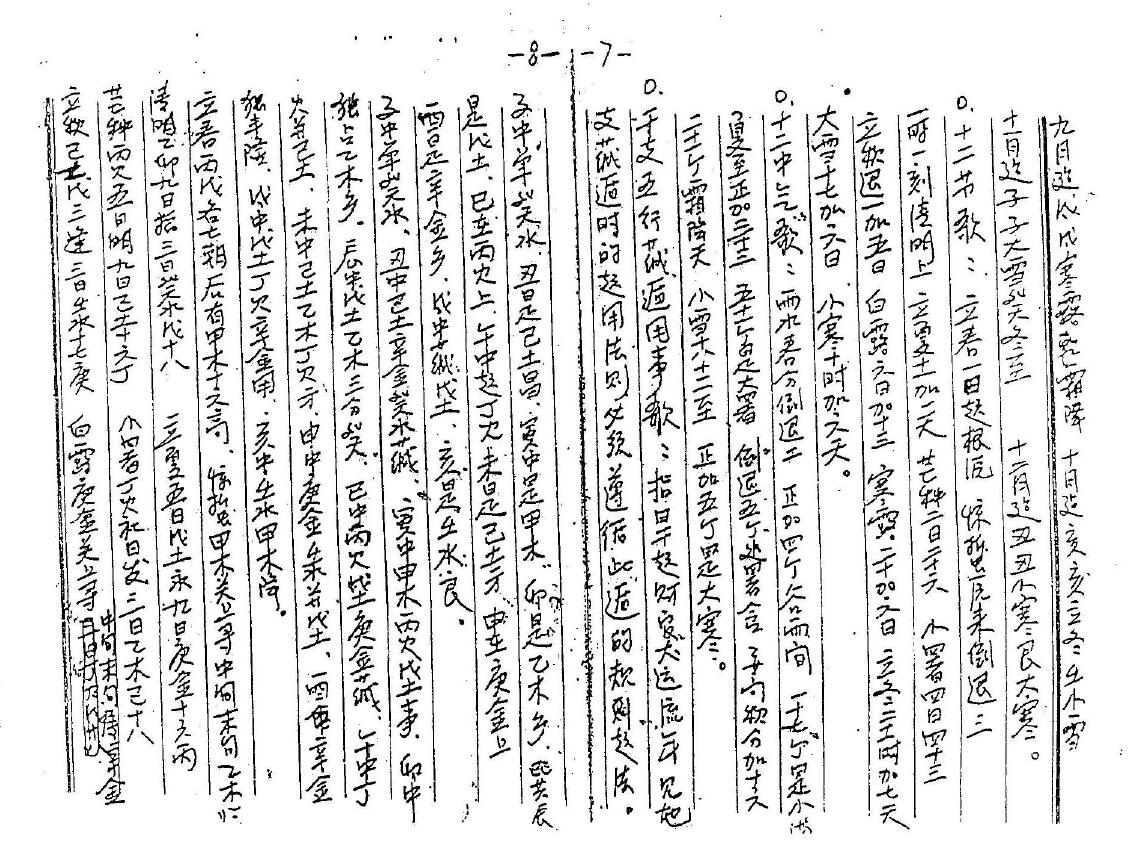 -7-
九月逢戌戌寒露霜降 十月逢亥亥立冬小雪
十一月逢子子大雪癸冬至 十二月逢丑丑小寒艮大寒。
0.十二节歌:立春一日起根源 惊蛰元来倒退二
时一刻清明上 立夏土加一天 芒种一日二十六 小暑四日四十三
立秋退一加五日 白露六日加十三 寒露二十加六日 立冬二十一时加七天
大雪三七加六日 小寒十时加六天。
0.十二中气歌:雨水春分倒退二 正加四个谷雨间 一十七个是小满
夏至正加二十三 五十六是大暑 倒退五个处暑言 子寅秋分加十六
二十六个霜降天 小雪十八十二至 正加五个是大寒。
0.干支五行藏遁用事歌:指日干起财官大运流年见地
支藏遁时的起用法则必须遵循此遁的规则起法。
-8-
子中单癸水,丑日是己土昌,寅中是甲木,卯是乙木乡,
是戊土,巳在丙火上,午中起丁火未是己土方 申在庚金上
酉日是辛金乡,戌中藏戊土,亥是壬水良。
子中单癸水,丑中己土辛金癸水藏,寅中甲木丙火戊土事,卯中
独占乙木乡,辰中戊土乙木三分癸,巳中丙火戊土庚金藏,午中丁
火并己土,未中己土乙木丁火方,申中庚金壬水并戊土,酉中辛金
独丰隆,戌中戊土丁火辛金用,亥中壬水甲木同。
立春丙戊各七朝 后有甲木十六高,惊蛰甲木关上寻中旬末旬乙木
清明乙卯九日指三日癸水戊十八 立夏五日戊土永九日庚金十六丙
芒种丙火五日明九日己土十六丁 小暑丁火社日发三日乙木己十八
立秋己土戊三逢三日壬水十七庚 白露庚金关上寻中旬末旬俱辛金